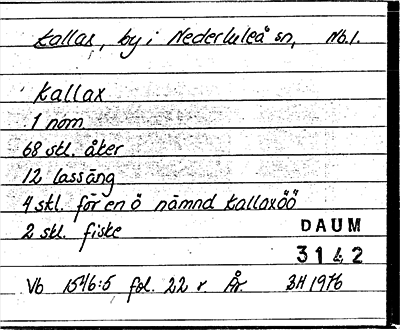 Kallax, by i Nederluleå sn, Nb.l.
Kallax
1 nom
68 stl. åker
12 lassäng
4 stl. för en ö nämnd Kallaxöö
2 stl. fiske
DAUM
3142
Vb 1546:5 fol. 22 r År. BH 1976